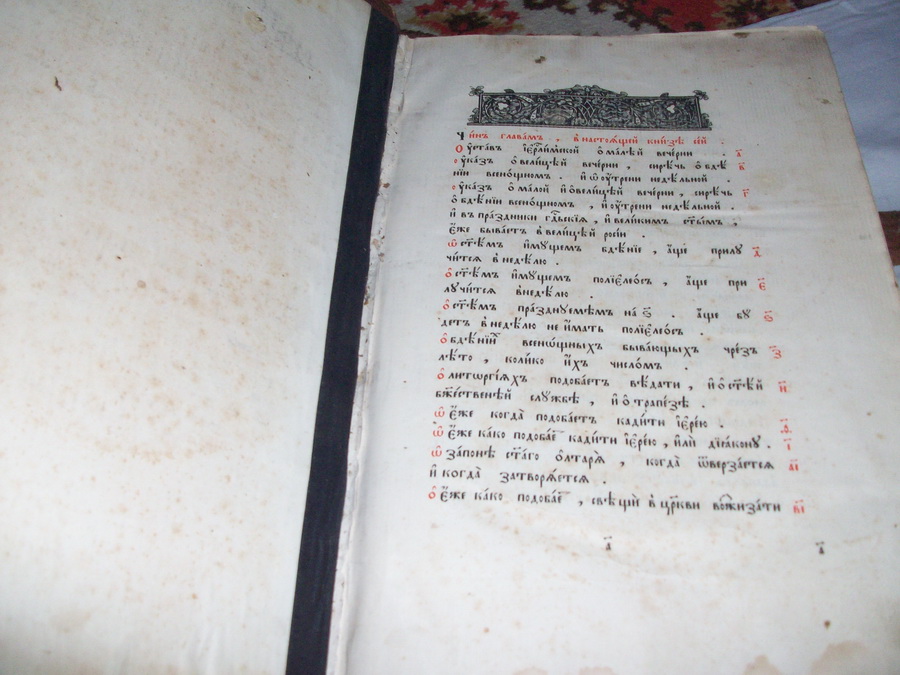 Чи́нъ глава́мъ . в настоѧ́щей кни́зѣ се́й .
Оу҆ста́въ і҆ерⷭ҇ли́мской ѡ҆ ма́лѣй вече́рни . а҃
оу҆ка́зъ ѡ҆ вели́цѣй вече́рни , си́рѣчь ѡ҆ бдѣ в҃
нїи всено́щномъ . и҆ ѡ҆ оу҆́трени недѣ́льной .
оу҆ка́зъ ѡ҆ ма́лой и҆ ѡ҆ вели́цѣй вече́рни , си́рѣчь г҃
ѡ҆ бдѣ́нїи всено́щномъ , и҆ оу҆́трени недѣ́льной .
и҆ въ пра́здники гдⷭ҇ьскїѧ , и҆ вели́кимъ ст҃ы́мъ ,
є҆́же быва́етъ в вели́цѣй росі́и .
ѡ҆ ст҃ѣ́мъ и҆му́щемъ бдѣ́нїе , а҆́ще прилу д҃
чи́тсѧ в недѣ́лю .
ѡ҆ ст҃ѣ́мъ и҆му́щемъ полїеле́ѡсъ , а҆́ще при є҃
лучи́тсѧ в недѣ́лю .
ѡ҆ ст҃ѣ́мъ пра́зднуемѣмъ на ѕ҃ . а҆́ще бу ѕ҃
детъ в недѣ́лю не и҆́мать полїеле́ѡсъ .
ѡ҆ бдѣ́нїихъ всено́щныхъ быва́ющыхъ чре́зъ з҃
лѣ́то , коли́ко и҆́хъ число́мъ .
ѡ҆ литꙋргі́ѧхъ подоба́етъ вѣ́дати , и҆ ѡ҆ ст҃ѣ́й и҃
бж҃е́ственѣй слу́жбѣ , и҆ ѡ҆ трапе́зѣ .
ѡ҆ є҆́же когда̀ подоба́етъ кади́ти і҆ере́ю . ѳ҃
ѡ҆ є҆́же ка́ко подоба́етъ кади́ти і҆ере́ю , и҆лѝ дїа́кону . і҃
ѡ҆ запо́нѣ ст҃а́го ѻ҆лтарѧ̀ , когда̀ ѿверза́етсѧ а҃і
и҆ когда̀ затворѧ́етсѧ .
ѡ҆ є҆́же ка́ко подоба́етъ , свѣщѝ в цр҃кви вожиза́ти в҃і
а҃ а҃